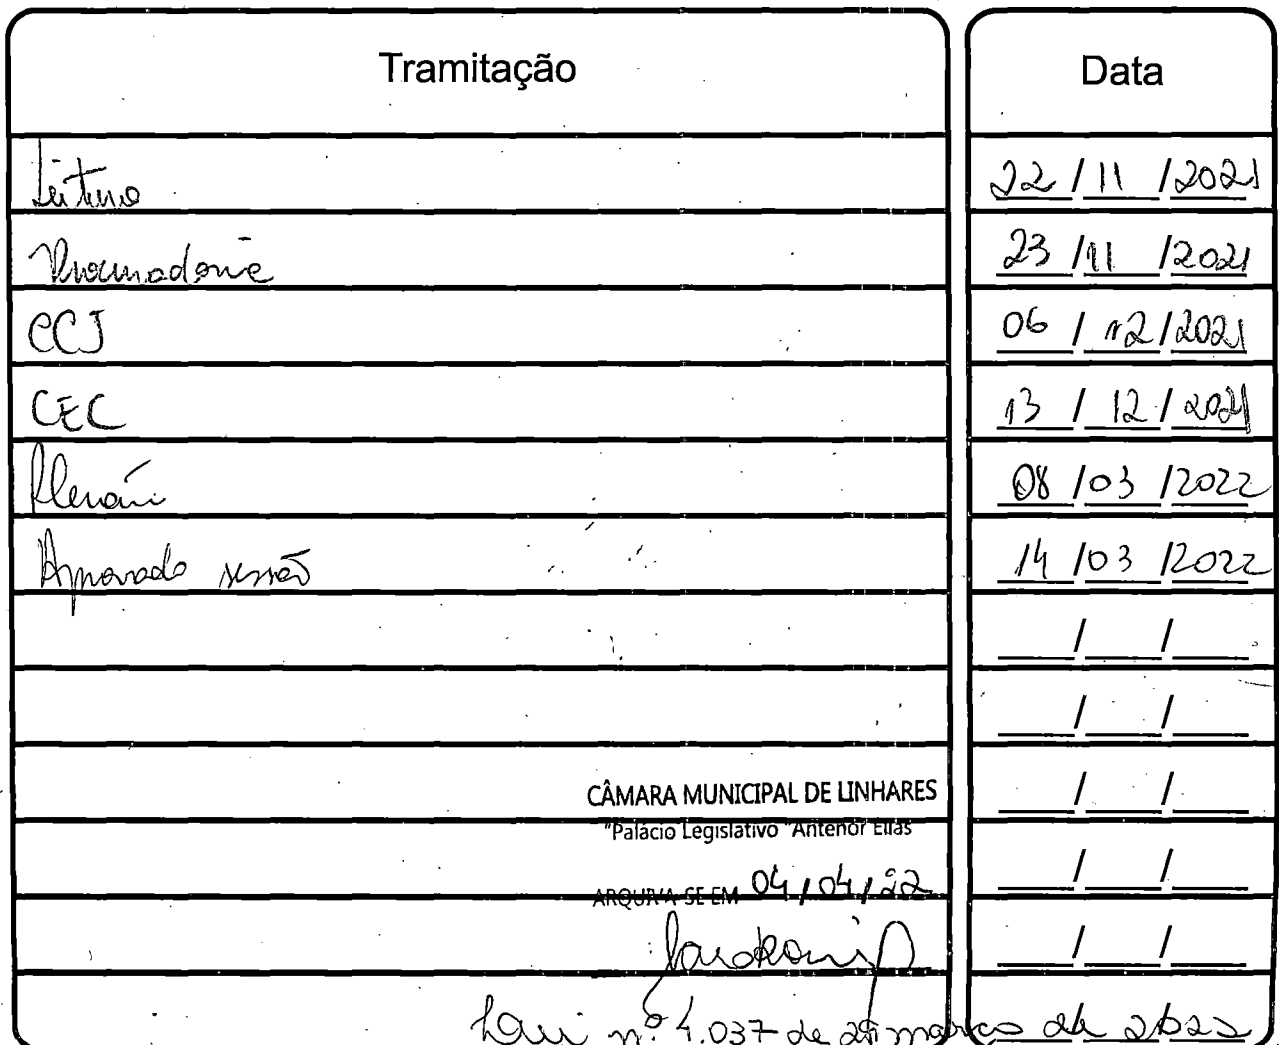 Tramitação Data
Leitura 22/11/2021
Procuradoria 23/11/2021
CCJ 06/12/2021
CEC 13/12/2021
Plenário 08/03/2022
Aprovado sessão 14/03/2022
CÂMARA MUNICIPAL DE LINHARES
"Palácio Legislativo "Antenor Elias
ARQUIVA-SE EM 04/04/22
nº 4.037 de março de 2022